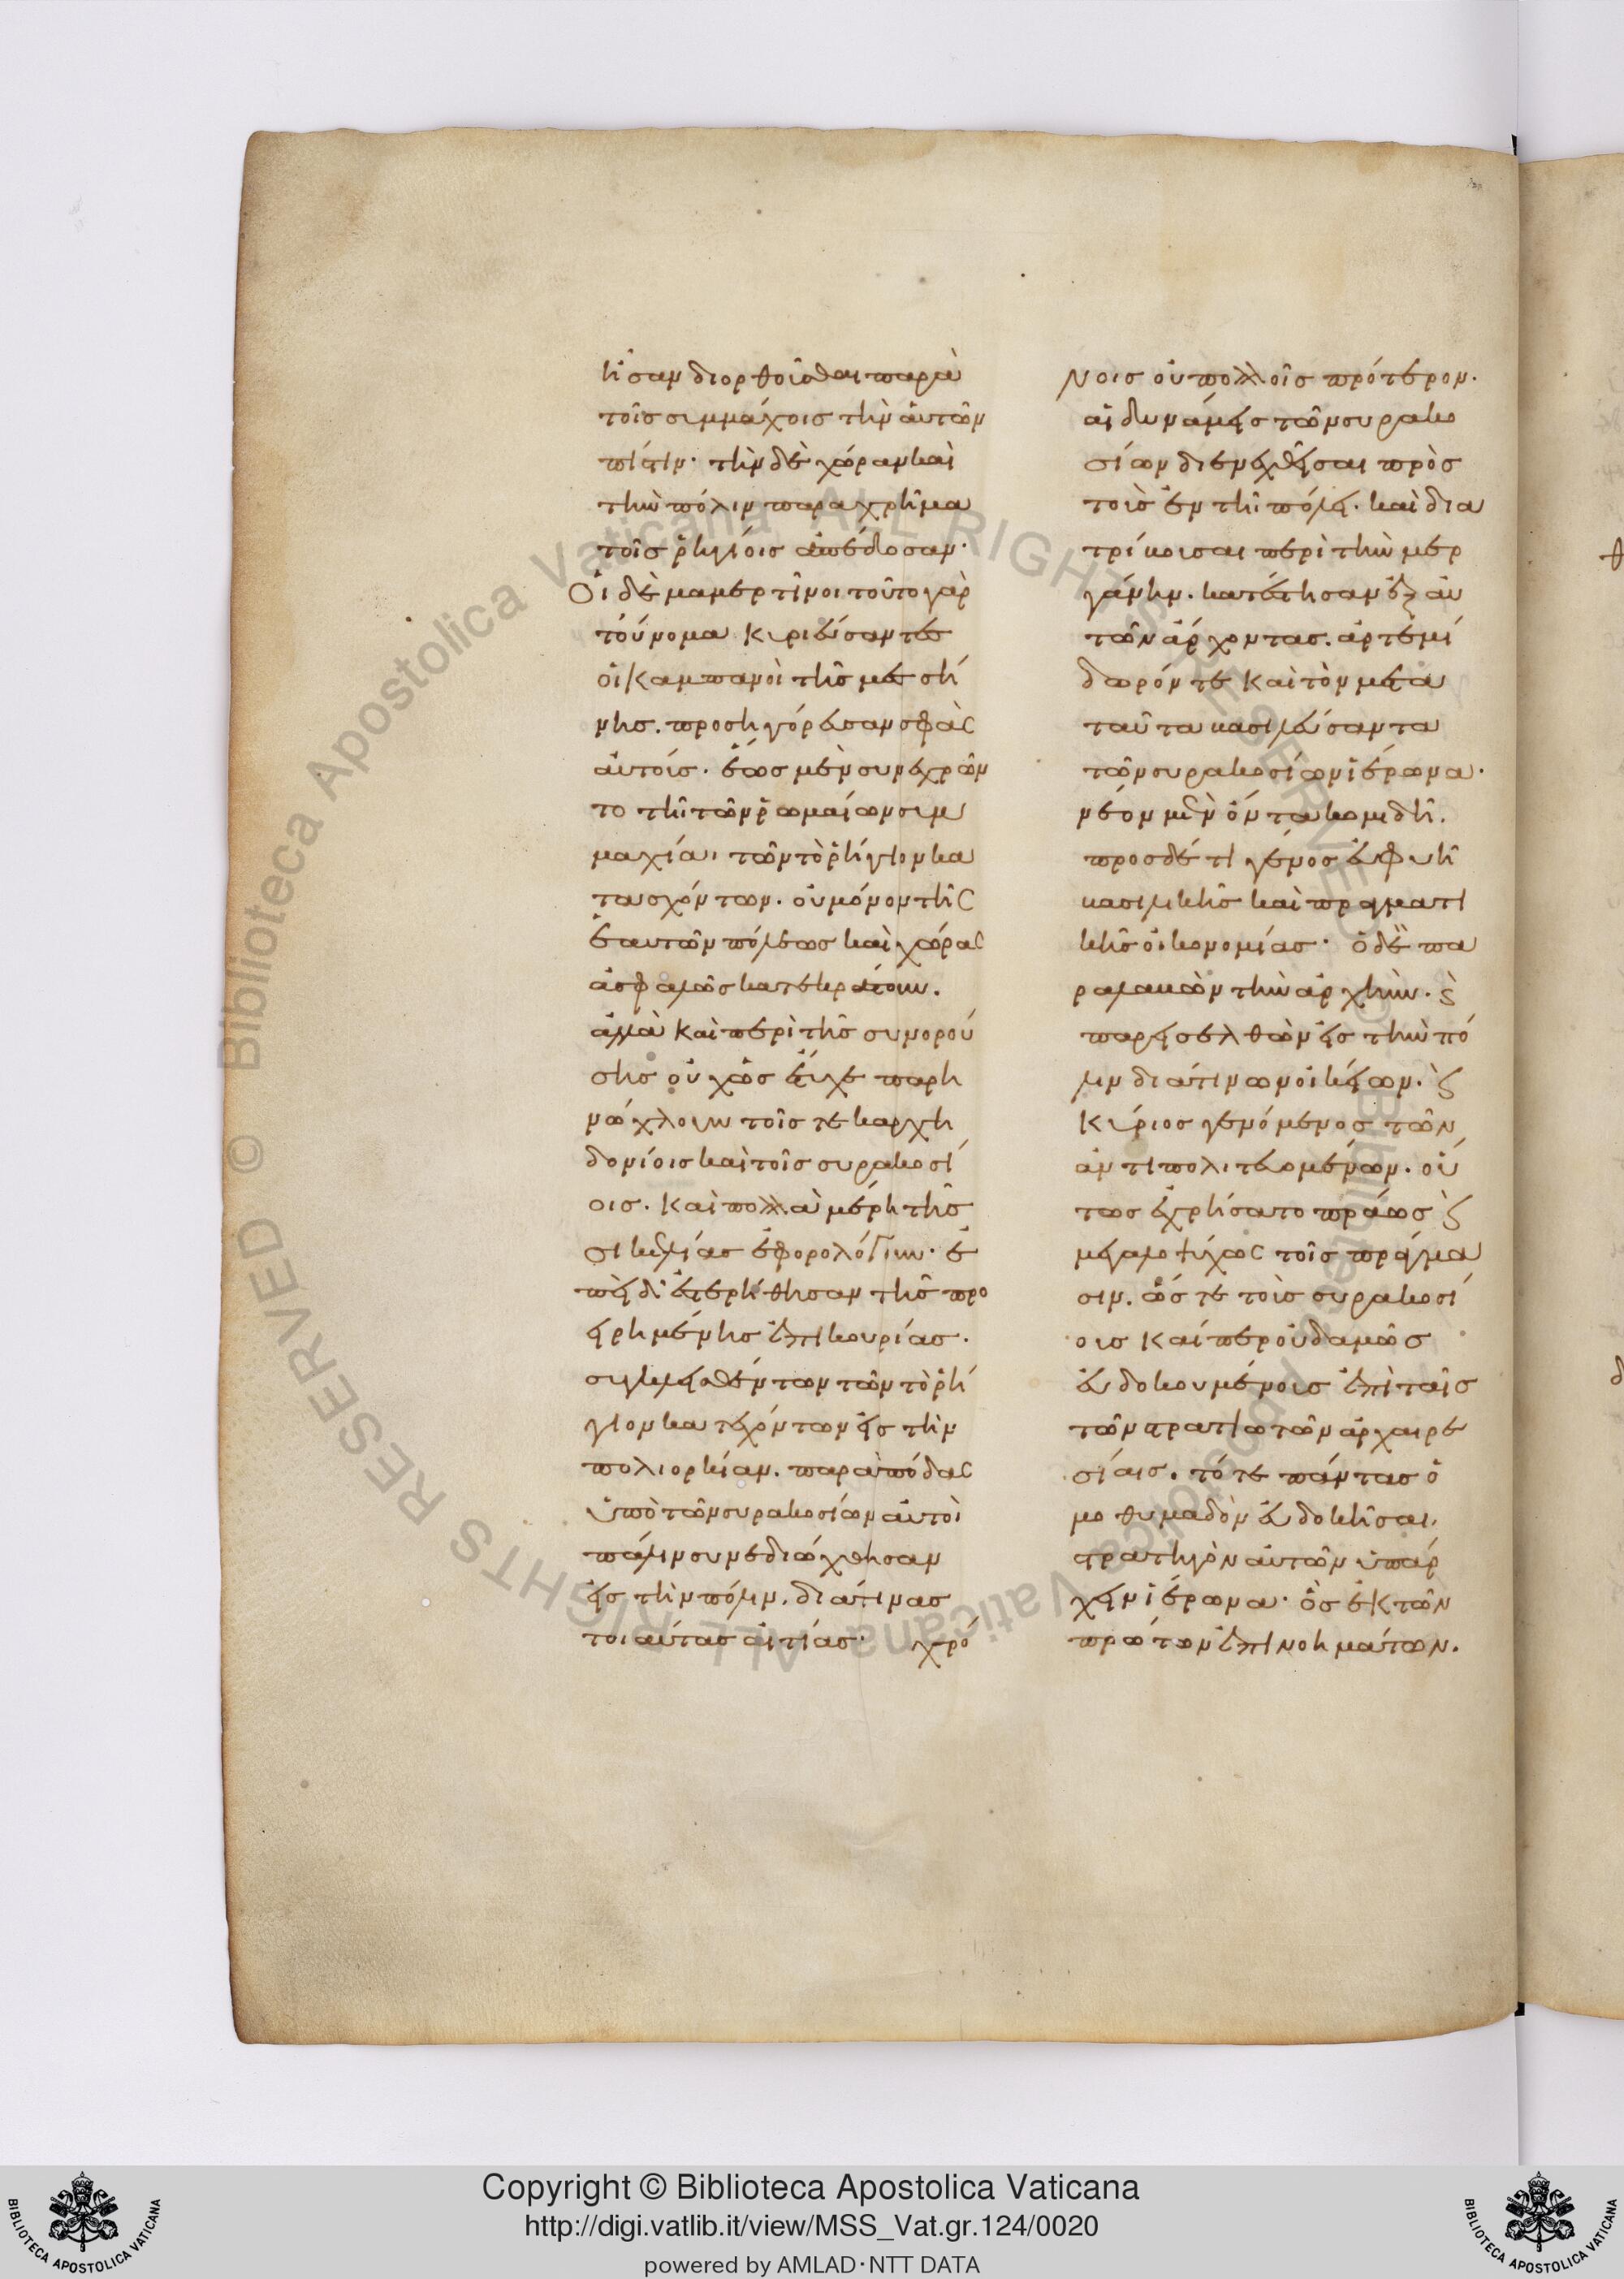 ἦσαν διορθοῦσθαι παρὰ
τοῖς συμμάχοις τὴν αὑτῶν
πίστιν· τὴν δὲ χώραν καὶ
τὴν πόλιν παραχρῆμα
τοῖς ῥηγίνοις ἀπέδοσαν·
Οἱ δὲ μαμερτῖνοι τοῦτο γὰρ
τοὔνομα κυριεύσαντες
οἱ καμπανοὶ τῆς μεσσή
νης. προσηγόρευσαν σφᾶς
αὐτούς. ἕως μὲν συνεχρῶν
το τῆι τῶν ῥωμαίων συμ
μαχία, τῶν τὸ ῥήγιον κα
τασχόντων. οὐ μόνον τῆς
ἑαυτῶν πόλεως καὶ χώρας
ἀσφαλῶς κατεκράτουν.
ἀλλὰ καὶ περὶ τῆς συνορού
σης οὐχ ὡς ἔτυχε παρη
νώχλουν τοῖς τε καρχη
δονίοις καὶ τοῖς συρακοσί
οις. καὶ πολλὰ μέρη τῆς
σικελίας ἐφορολόγουν· ἐ
πεὶ δ' ἐστερήθησαν τῆς προ
ειρημένης ἐπικουρίας.
συγκλεισθέντων τῶν τὸ ῥή
γιον κατεχόντων εἰς τὴν
πολιορκίαν. παρὰ πόδας
ὑπὸ τῶν συρακοσίων αὐτοὶ
πάλιν συνεδιώχθησαν
εἰς τὴν πόλιν. διά τινας
τοιαύτας αἰτίας· χρό
νοις οὐ πολλοῖς πρότερον.
αἱ δυνάμεις τῶν συρακο
σίων διενεχθεῖσαι πρὸς
τοὺς ἐν τῆι πόλει. καὶ δια
τρίβουσαι περὶ τὴν μερ
γάνην. κατέστησαν ἐξ αὑ
τῶν ἄρχοντας. ἀρτεμί
δωρόν τε καὶ τὸν μετὰ
ταῦτα βασιλεύσαντα
τῶν συρακοσίων ἱέρωνα.
νέον μὲν ὄντα κομιδῆ.
πρὸς δέ τι γένος εὐφυῆ
βασιλικῆς καὶ πραγματι
κῆς οἰκονομίας· ὁ δὲ πα
ραλαβὼν τὴν ἀρχὴν. ϗ
παρεισελθὼν εἰς τὴν πό
λιν διά τινων οἰκείων. ϗ
κύριος γενόμενος τῶν
ἀντιπολιτευομένων. οὕ
τως ἐχρήσατο πράως ϗ
μεγαλοψύχως τοῖς πράγμα
σιν. ὥστε τοὺς συρακοσί
οις καίπερ οὐδαμῶς
εὐδοκουμένοις ἐπὶ ταῖς
τῶν στρατιωτῶν ἀρχαιρε
σίαις. τότε πάντας ὁ
μοθυμαδὸν εὐδοκῆσαι,
στρατηγὸν αὑτῶν ὑπάρ
χειν ἱέρωνα· ὃς ἐκ τῶν
πρώτων ἐπινοημάτων.
Copyright © Biblioteca Apostolica Vaticana
http://digi.vatlib.it/view/MSS_Vat.gr.124/0020
powered by AMLAD·NTT DATA